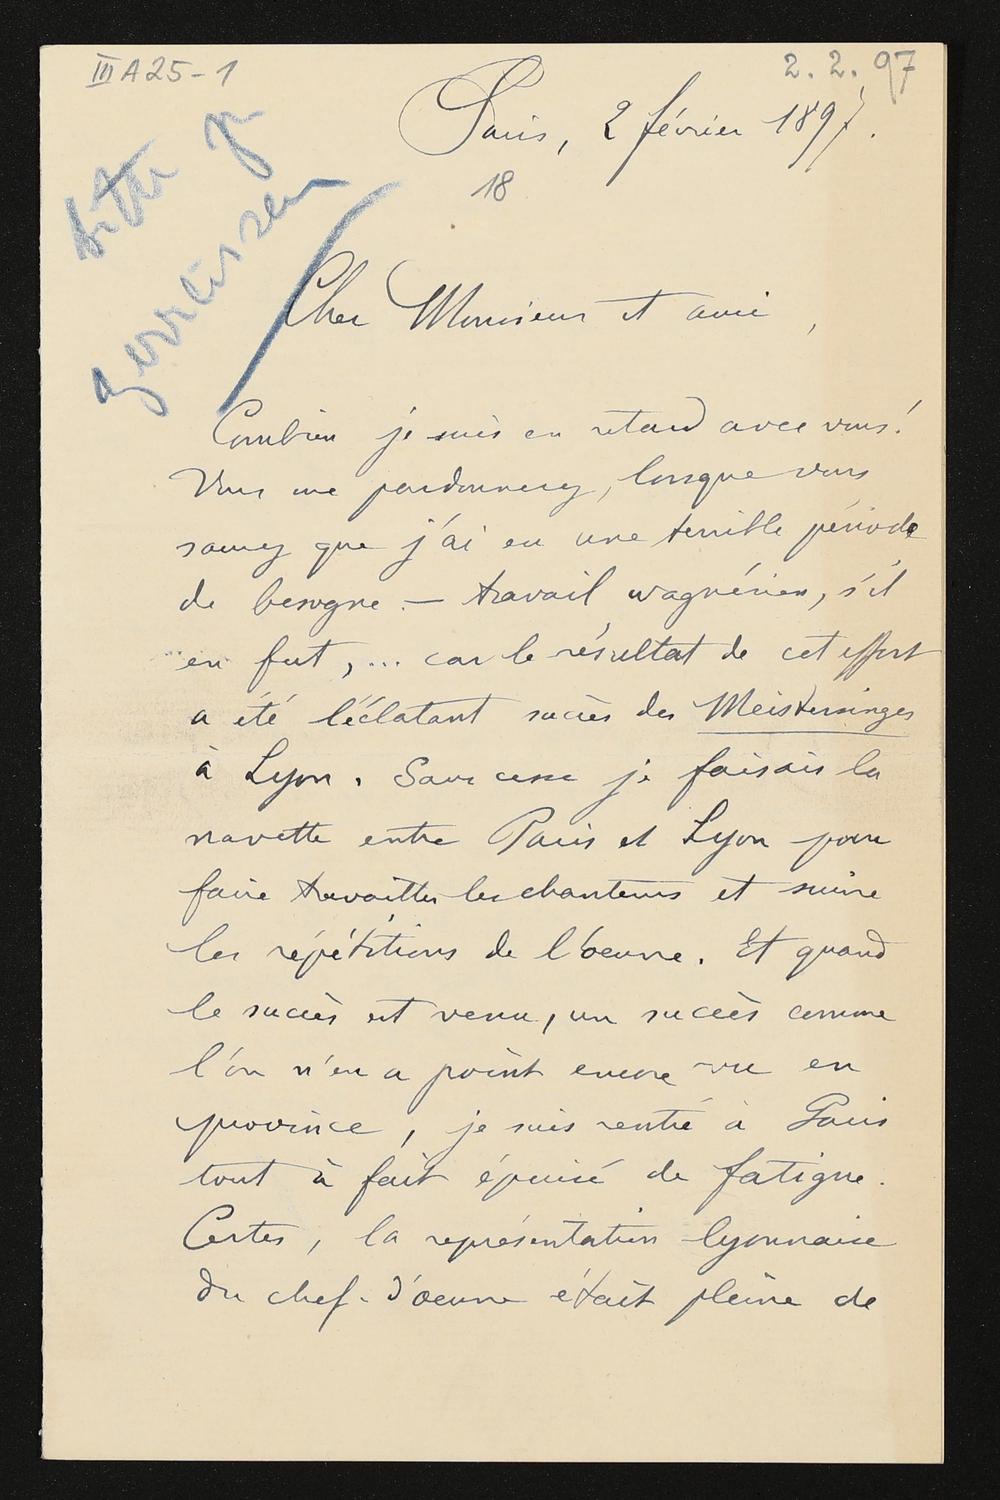 III A 25 - 1
2. 2. 97
Paris, 2 février 1897.
18
bitte zu
Cher Monsieur et ami,
Combien je suis en retard avec vous!
Vous me pardonnerez, lorsque vous
saurez que j'ai eu une terrible période
de besogne. — travail wagnérien, s'il
en fut, ... car le résultat de cet effort
a été l'éclatant succès des Meistersinger
à Lyon. Sans cesse je faisais la
navette entre Paris et Lyon pour
faire travailler les chanteurs et suivre
les répétitions de l'oeuvre. Et quand
le succès est venu, un succès comme
l'on n'en a point encore vu en
province, je suis rentré à Paris
tout à fait épuisé de fatigue.
Certes, la représentation lyonnaise
du chef-d'oeuvre était pleine de